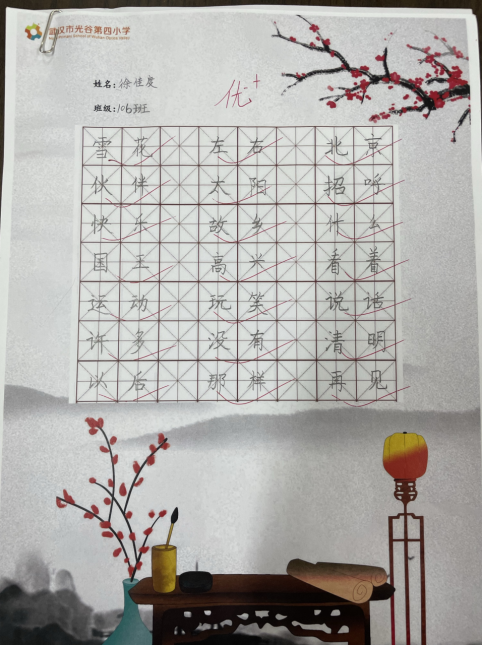 武汉市光谷第四小学
姓名:徐佳度
优+
班级:106班
雪花 左右 北京
伙伴 太阳 招呼
快乐 故乡 什么
国王 高兴 看着
运动 玩笑 说话
许多 没有 清明
以后 那样 再见